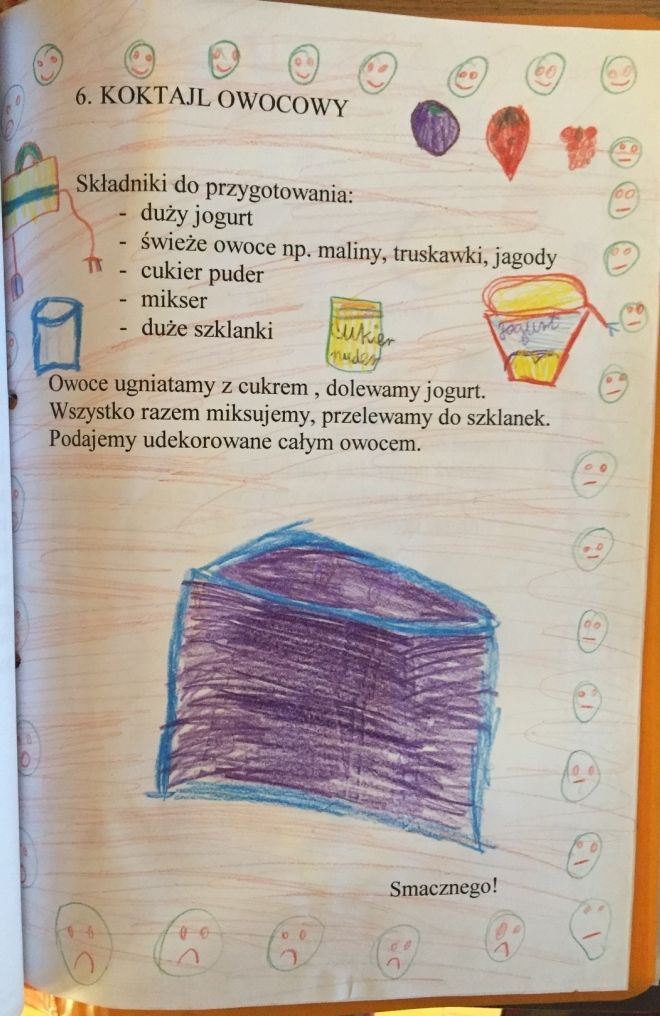 6. KOKTAJL OWOCOWY
Składniki do przygotowania:
- duży jogurt
- świeże owoce np. maliny, truskawki, jagody
- cukier puder
- mikser
- duże szklanki
cukier
puder
jogurt
Owoce ugniatamy z cukrem , dolewamy jogurt.
Wszystko razem miksujemy, przelewamy do szklanek.
Podajemy udekorowane całym owocem.
Smacznego!